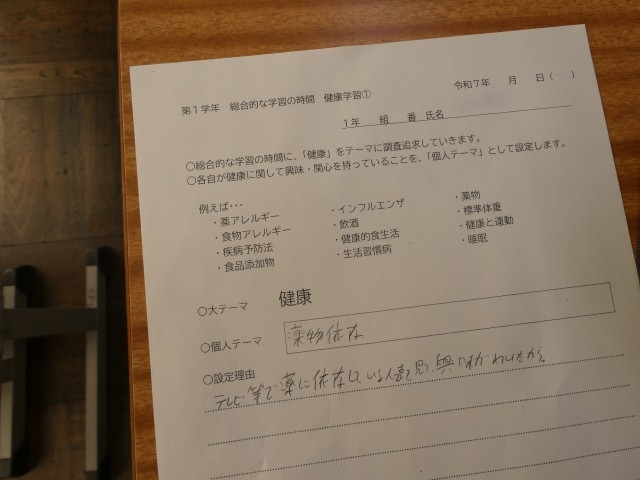 第1学年　総合的な学習の時間　健康学習①
令和7年　　月　　日（　　）
1年　　組　　番　氏名
○総合的な学習の時間に、「健康」をテーマに調査追求していきます。
○各自が健康に関して興味・関心を持っていることを、「個人テーマ」として設定します。
例えば・・・
・薬アレルギー
・食物アレルギー
・疾病予防法
・食品添加物
・インフルエンザ
・飲酒
・健康的食生活
・生活習慣病
・薬物
・標準体重
・健康と運動
・睡眠
○大テーマ　健康
○個人テーマ　薬物依存
○設定理由
テレビ等で薬に依存している人を見、興味がわいたから